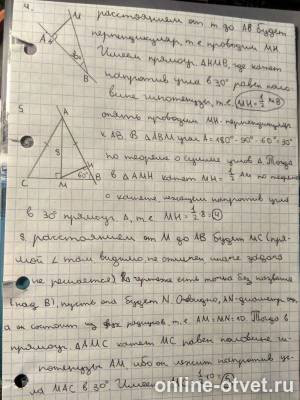 4.
расстоянием от т. до АВ будет
перпендикуляр, т.е. проводим МН
Имеем прямоуг. ΔНМВ, где катет
напротив угла в 30° равен поло-
вине гипотенузы, т.е. МН = 1/2 МВ
M
A
30°
B
5.
опять проводим МН - перпендикуляр
к АВ. В ΔАВМ угол А = 180° - 90° - 60° = 30°
по теореме о сумме углов Δ. Тогда
в ΔАМН катет МН = 1/2 АМ по теореме
о катете, лежащем напротив угла
A
8
H
60°
C
M
B
в 30° прямоуг. Δ, т.е. МН = 1/2 · 8 = 4
8. расстоянием от М до АВ будет МС (пря-
мой ∠ там, видимо, не отмечен, иначе задача
не решается) На чертеже есть точка без названия
(над В), пусть она будет N. Очевидно, AN - диаметр
а он состоит из двух радиусов, т.е. АМ = МN = 10. Тогда в
прямоуг. ΔАМС катет МС равен половине ги-
потенузы АМ, ибо он лежит напротив уг-
ла МАС в 30°. Имеем
online-otvet.ru